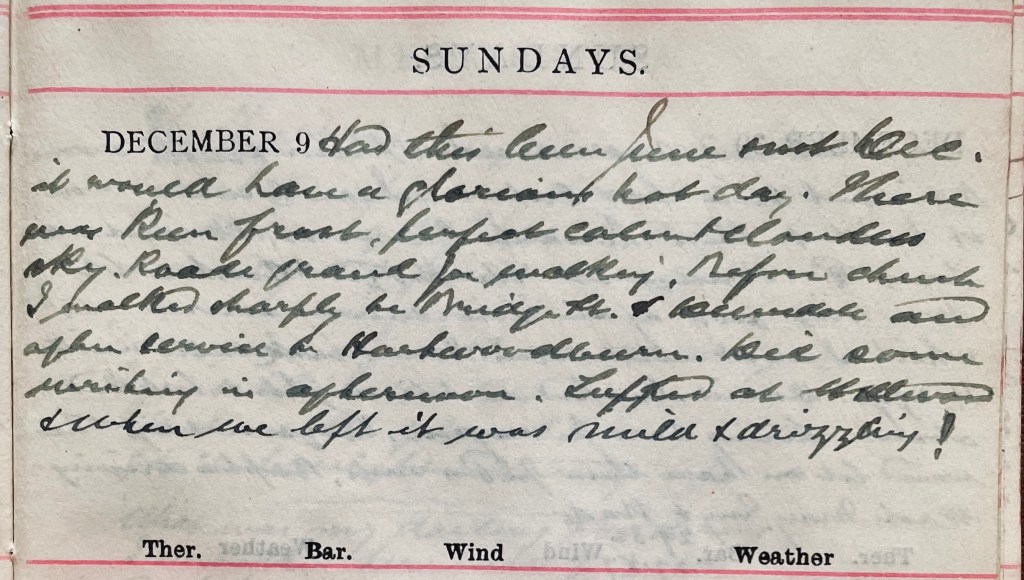 SUNDAYS.
DECEMBER 9 Had this been June & not Dec.
it would have a glorious hot day. There
was keen frost, perfect calm & cloudless
sky. Roads grand for walking. Before church
I walked sharply to Bridge St. & and
after service to Hartwoodburn. Did some
writing in afternoon. Supped at Wellwood
& when we left it was mild & drizzling!
Ther. Bar. Wind Weather